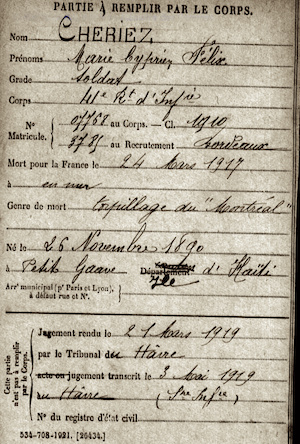 PARTIE À REMPLIR PAR LE CORPS.
Nom CHERIEZ
Prénoms Marie Cyprien Félix
Grade Soldat
Corps 41e Rt d'Infie
N° 07768 au Corps. — Cl. 1910
Matricule. 3785 au Recrutement Bordeaux
Mort pour la France le 24 Mars 1917
à en mer
Genre de mort torpillage du "Montréal"
Né le 26 Novembre 1890
à Petit Goave Département d'Haïti
Arrt municipal (pr Paris et Lyon),
à défaut rue et N°.
Cette partie
n'est pas à remplir
par le Corps.
Jugement rendu le 21 Mars 1919
par le Tribunal du Hâvre
acte ou jugement transcrit le 3 Mai 1919
au Hâvre (Sne Infre)
N° du registre d'état civil
534-708-1921. [26434.]